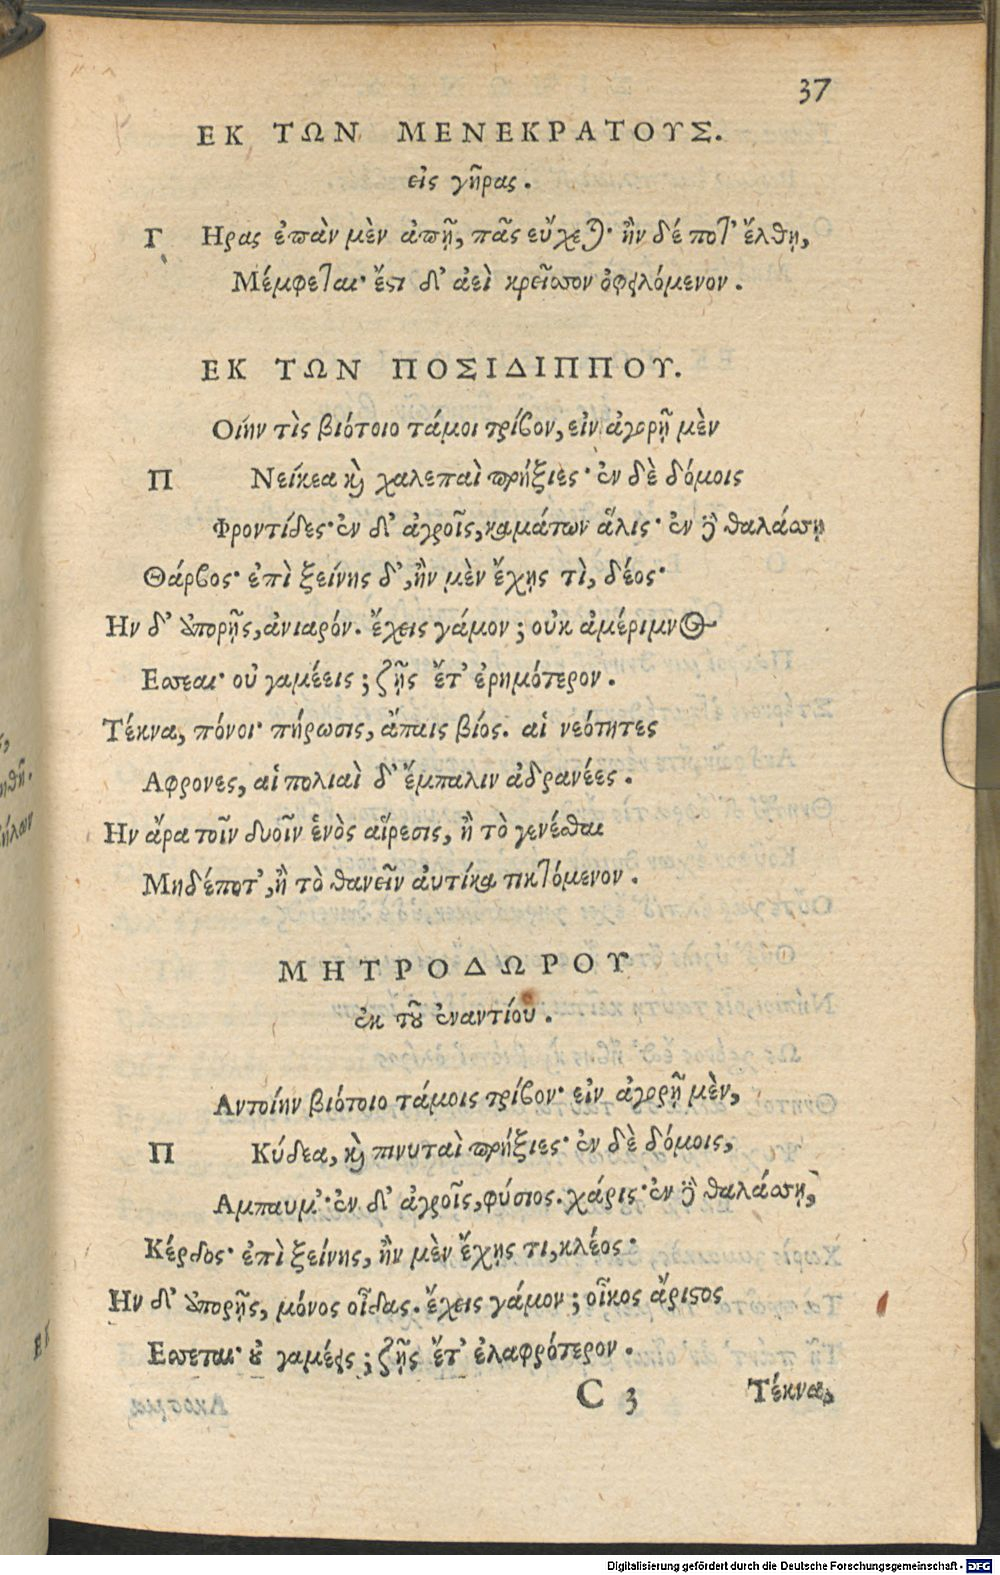 37
ΕΚ ΤΩΝ ΜΕΝΕΚΡΑΤΟΥΣ.
εἰς γῆρας.
Γ Ηρας ἐπὰν μὲν ἀπῇ, πᾶς εὔχεται· ἢν δέ ποτ' ἔλθῃ,
Μέμφεται· ἔστι δ' ἀεὶ κρεῖσσον ὀφειλόμενον.
ΕΚ ΤΩΝ ΠΟΣΙΔΙΠΠΟΥ.
Οίην τὶς βιότοιο τάμοι τρίβον, εἰν ἀγορῇ μὲν
Π Νείκεα καὶ χαλεπαὶ πρήξιες· ἐν δὲ δόμοις
Φροντίδες· ἐν δ' ἀγροῖς, καμάτων ἅλις· ἐν δὲ θαλάσσῃ
Θάρβος· ἐπὶ ξείνης δ', ἢν μὲν ἔχῃς τὶ, δέος·
Ην δ' ἀπορῇς, ἀνιαρόν. ἔχεις γάμον; οὐκ ἀμέριμνος
Εσσεαι· οὐ γαμέεις; ζῇς ἔτ' ἐρημότερον.
Τέκνα, πόνοι· πήρωσις, ἄπαις βίος. αἱ νεότητες
Αφρονες, αἱ πολιαὶ δ' ἔμπαλιν ἀδρανέες.
Ην ἄρα τοῖν δυοῖν ἑνὸς αἵρεσις, ἢ τὸ γενέσθαι
Μηδέποτ', ἢ τὸ θανεῖν αὐτίκα τικτόμενον.
ΜΗΤΡΟΔΩΡΟΥ
ἐκ τοῦ ἐναντίου.
Αντοίην βιότοιο τάμοις τρίβον· εἰν ἀγορῇ μὲν,
Π Κύδεα, καὶ πινυταὶ πρήξιες· ἐν δὲ δόμοις,
Αμπαυμ'· ἐν δ' ἀγροῖς, φύσιος. χάρις· ἐν δὲ θαλάσσῃ,
Κέρδος· ἐπὶ ξείνης, ἢν μὲν ἔχῃς τι, κλέος·
Ην δ' ἀπορῇς, μόνος οἶδας. ἔχεις γάμον; οἶκος ἄριστος
Εσσεται· οὐ γαμέεις; ζῇς ἔτ' ἐλαφρότερον.
C 3 Τέκνα,
Digitalisierung gefördert durch die Deutsche Forschungsgemeinschaft - DFG